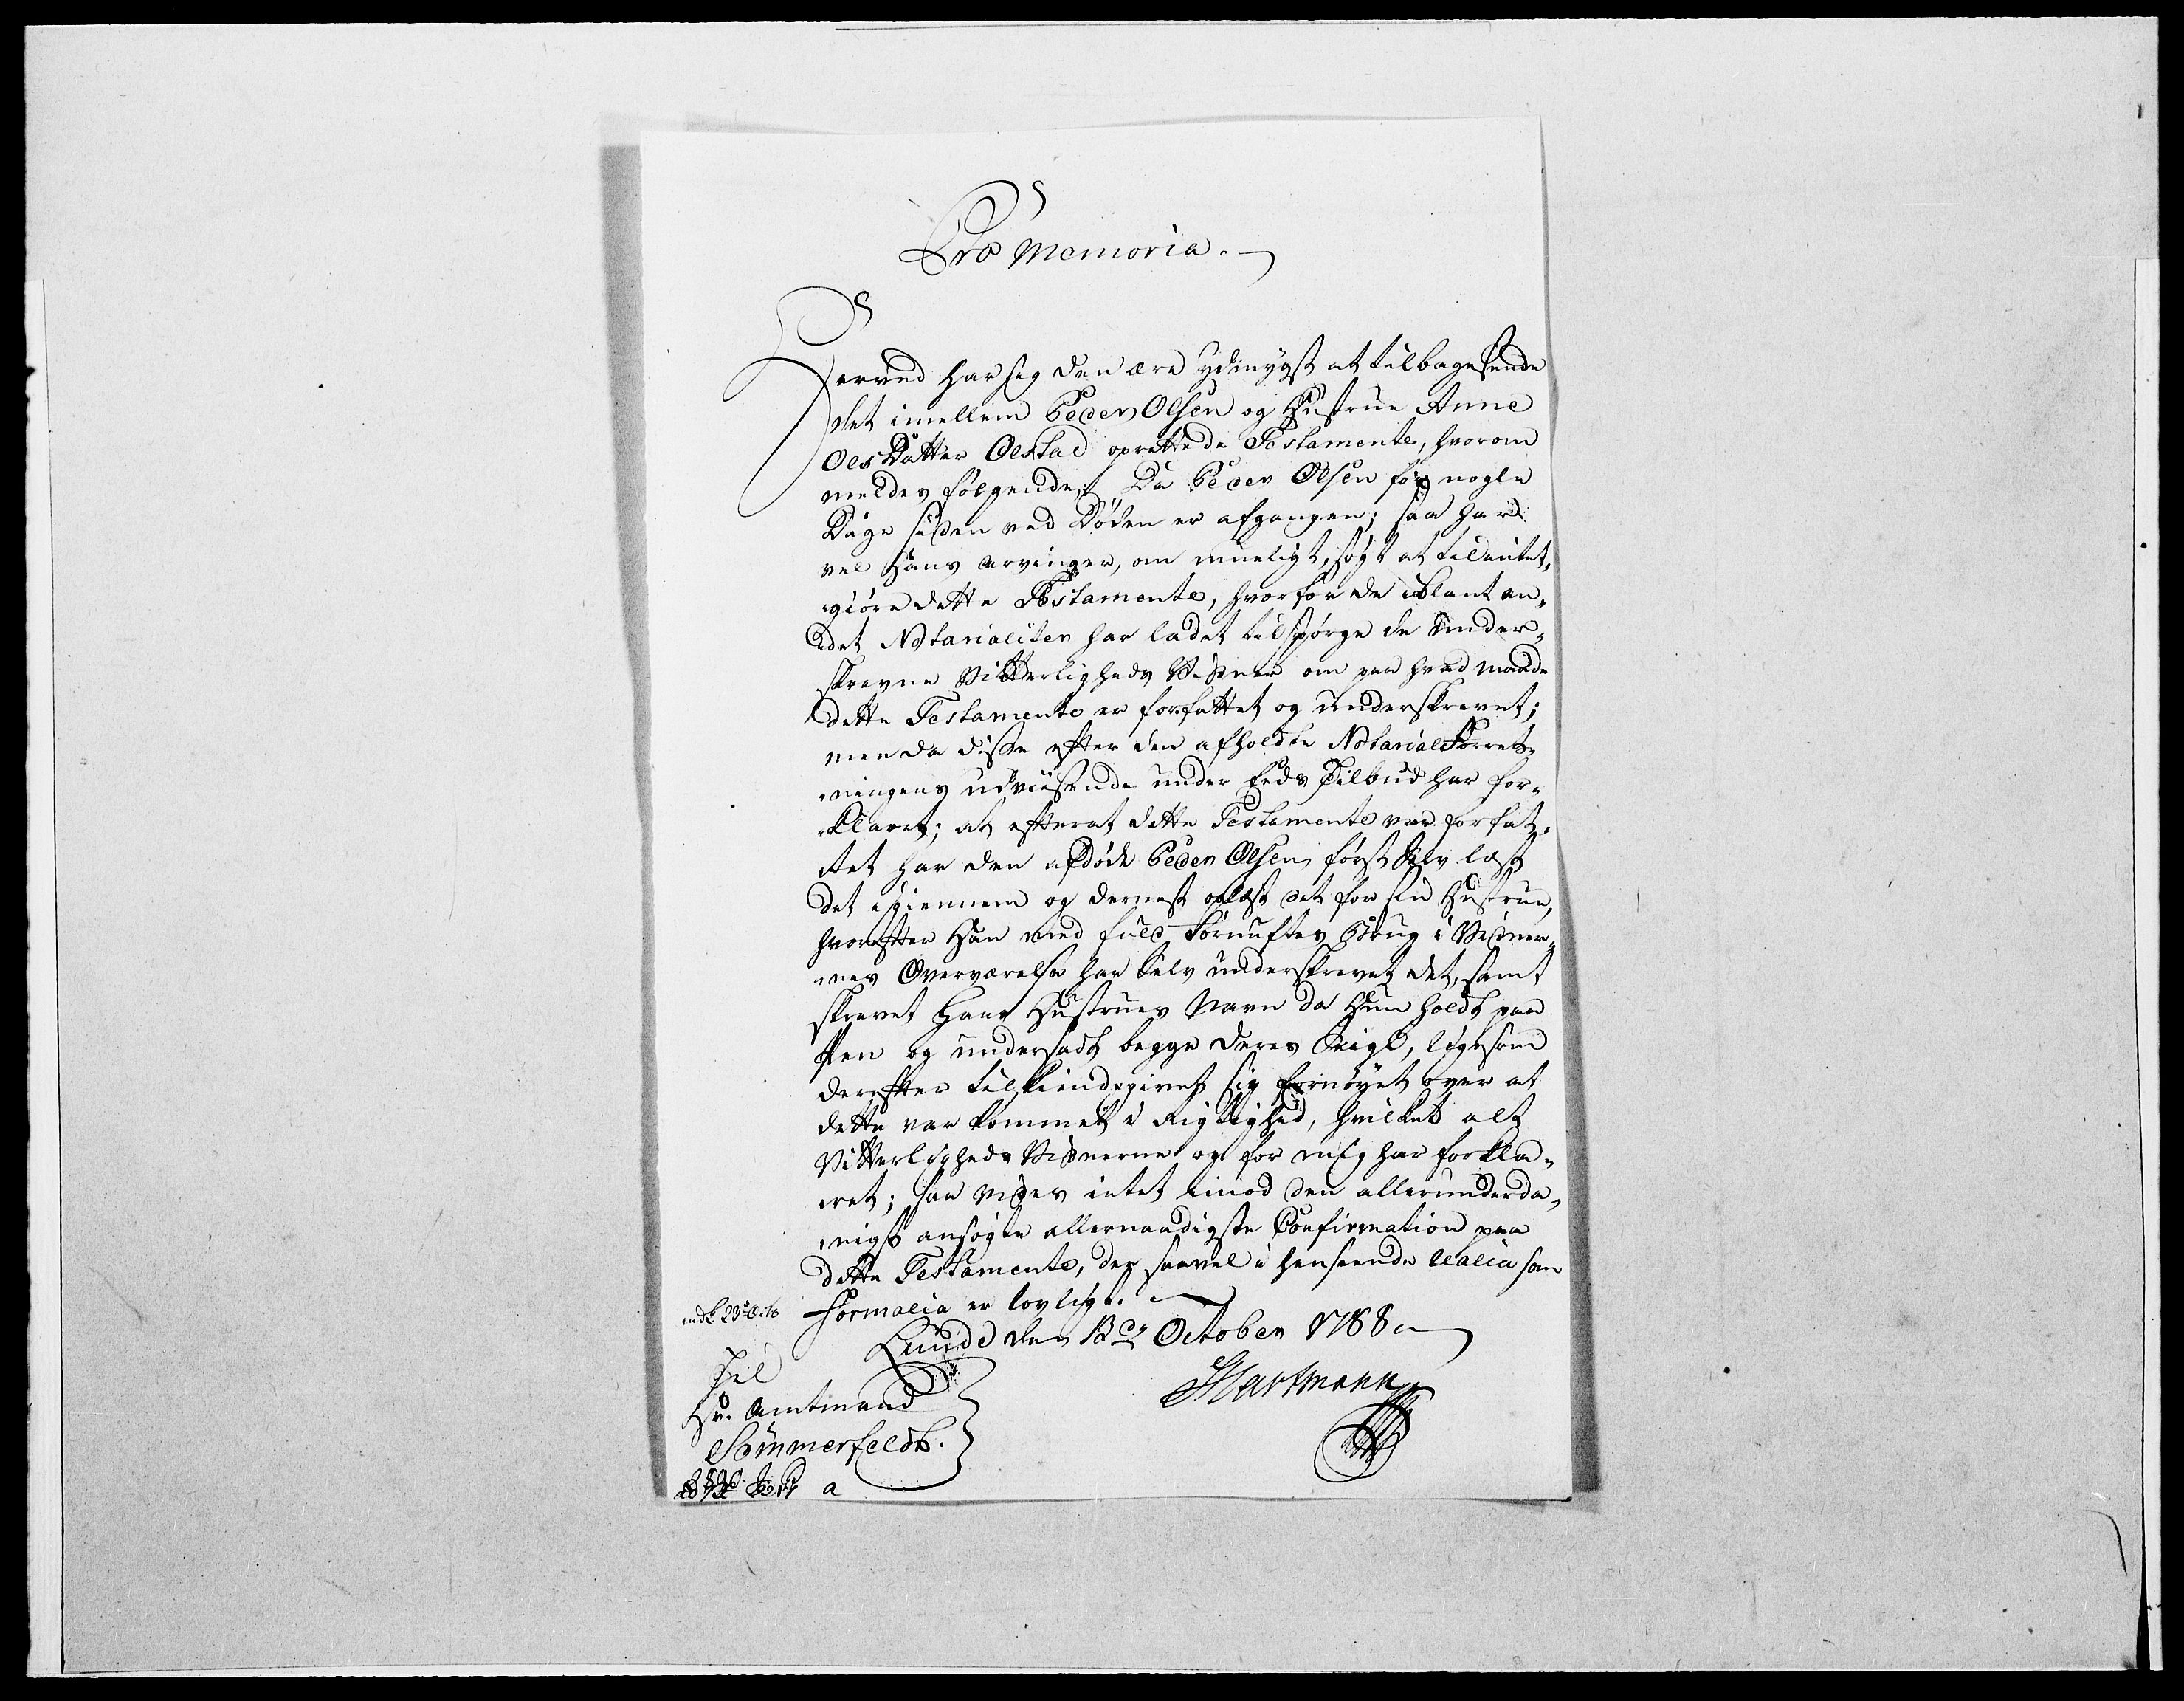 Pro Memoria.
Herved har jeg den ære ydmygst at tilbagesende
det imellem Peder Olsen og Hustrue Anne
Ols Datter Oelstad oprettede Testamente, hvorom
meldes følgende: Da Peder Olsen for nogle
Dage siden ved Døden er afgangen; saa har
vel Hans Arvinger, om mueligt, søgt at tilintet-
giøre dette Testamente, hvorfor de iblant an-
det Notarialiter har ladet tilspørge de under-
skrevne Vitterligheds Vidner om paa hvad maade
dette Testamente er forfattet og underskrevet;
men da disse efter den afholdte Notarial Forret-
ningens udviisende under Eeds Tilbud har for-
klaret; at efterat dette Testamente var forfat-
tet har den afdøde Peder Olsen først selv læst
det igiennem og dernest oplæst det for sin Hustrue,
hvorefter Han med fuld Fornuftes Brug i Vidner-
nes Overværelse har selv underskrevet det, samt
skrevet hans Hustrues Navn da Hun holdt paa
Pen og undersadt begge deres Seigl, ligesom
derefter tilkiendegivet sig fornøyet over at
dette var kommet i Rigtighed, hvilket alt
Vitterligheds Vidnerne og for mig har forkla-
ret; saa vides intet imod den allerunderda-
nigst ansøgte allernaadigste Confirmation paa
dette Testamente, der saavel i henseende realia som
formalia er lovligt.
indk. 23de Octb
Lunde den 13de October 1788
Til
Hr. Amtmand
Sommerfeldt.
Hartmann